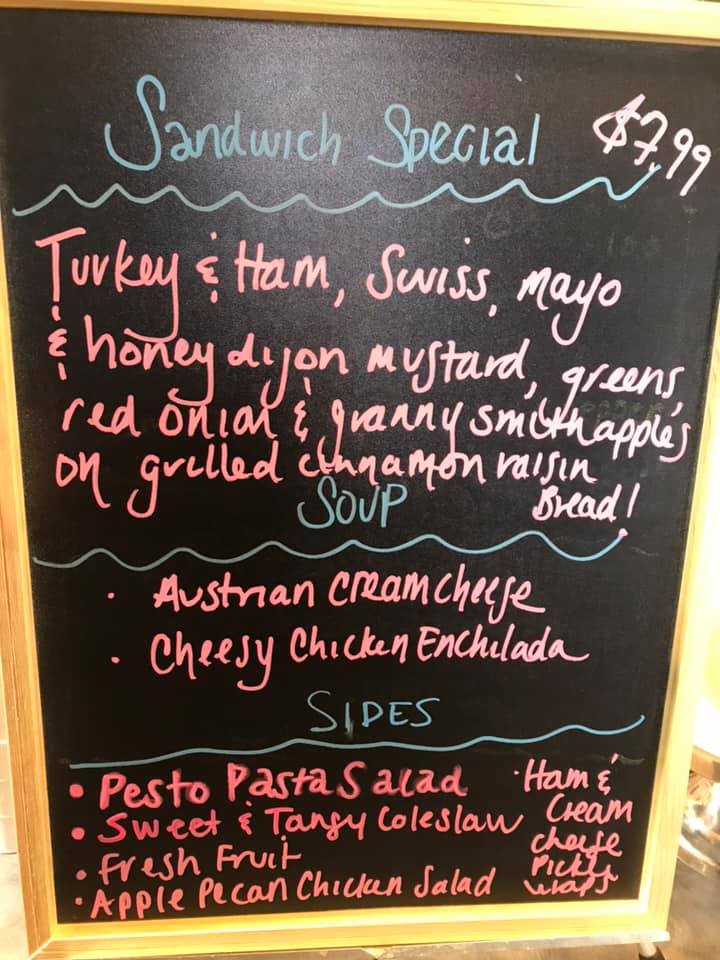 Sandwich Special $7.99
Turkey & Ham, Swiss, mayo
& honey dijon mustard, greens,
red onion & granny smith apples
on grilled cinnamon raisin
Bread!
Soup
· Austrian Cream cheese
· Cheesy Chicken Enchilada
SIDES
• Pesto Pasta Salad
• Sweet & Tangy Coleslaw
• Fresh Fruit
• Apple Pecan Chicken Salad
· Ham &
Cream
cheese
Pickle
wraps